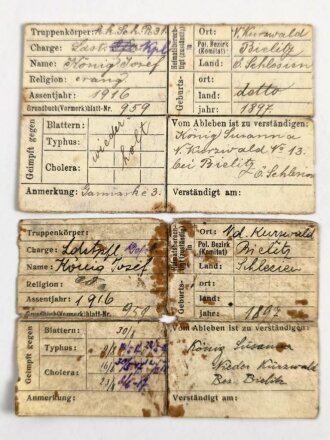 Truppenkörper: k.k. Sch. R. 31
Charge: Ldst.
Name: König Josef
Religion: evang.
Assentjahr: 1916
Grundbuch(Vormerk)blatt-Nr. 959
Heimatsberechtigt (zuständig)
Geburts-
Ort: N. Kurzwald
Pol. Bezirk (Komitat) Bielitz
Land: Ö. Schlesien
Ort: dotto
jahr: 1897
Geimpft gegen
Blattern:
Typhus: wieder-
Cholera: holt
Anmerkung:
Vom Ableben ist zu verständigen:
König Susanna
N. Kurzwald No 13.
bei Bielitz
Ö. Schlesien
Verständigt am:
Truppenkörper:
Charge:
Name: König Josef
Religion:
Assentjahr: 1916
Grundbuch(Vormerk)blatt-Nr. 959
Geburts-
Ort: Nd. Kurzwald
Pol. Bezirk (Komitat) Bielitz
Land: Schlesien
Ort:
Land:
jahr: 1897
Geimpft gegen
Blattern:
Typhus:
Cholera:
Anmerkung:
Vom Ableben ist zu verständigen:
König Susanna
Nieder Kurzwald
Bez. Bielitz
Verständigt am: